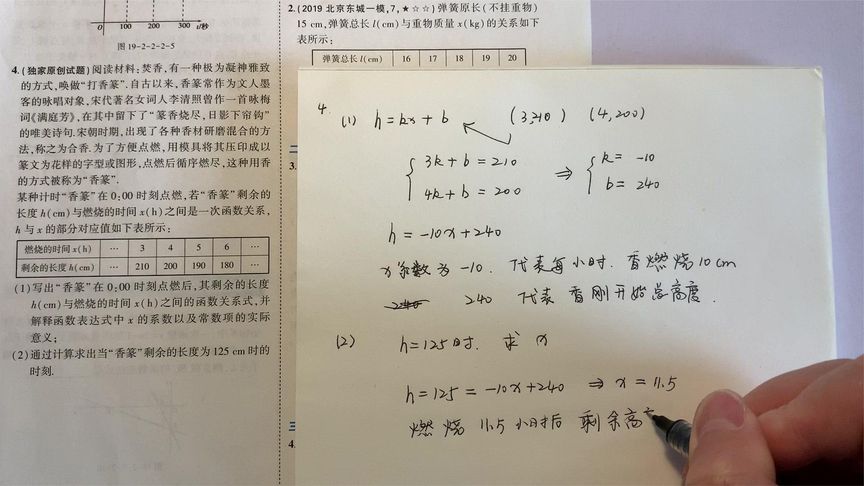 O 100 200 300 t/秒
图 19-2-2-2-5
4.(独家原创试题)阅读材料:焚香,有一种极为凝神雅致
的方式,唤做“打香篆”.自古以来,香篆常作为文人墨
客的咏唱对象,宋代著名女词人李清照曾作一首咏梅
词《满庭芳》,在其中留下了“篆香烧尽,日影下帘钩”
的唯美诗句.宋朝时期,出现了各种香材研磨混合的方
法,称之为合香.为了方便点燃,用模具将其压印成以
篆文为花样的字型或图形,点燃后循序燃尽,这种用香
的方式被称为“香篆”.
某种计时“香篆”在 0:00 时刻点燃,若“香篆”剩余的
长度 h(cm)与燃烧的时间 x(h)之间是一次函数关系,
h 与 x 的部分对应值如下表所示:
燃烧的时间 x(h) … 3 4 5 6 …
剩余的长度 h(cm) … 210 200 190 180 …
(1)写出“香篆”在 0:00 时刻点燃后,其剩余的长度
h(cm)与燃烧的时间 x(h)之间的函数关系式,并
解释函数表达式中 x 的系数以及常数项的实际
意义;
(2)通过计算求出当“香篆”剩余的长度为 125 cm 时的
时刻.
2.(2019 北京东城一模,7,★☆☆)弹簧原长(不挂重物)
15 cm,弹簧总长 l(cm)与重物质量 x(kg)的关系如下
表所示:
弹簧总长 l(cm) 16 17 18 19 20
3.
4
4.
(1) h=kx+b (3,210) (4,200)
3k+b=210 ⇒ k=-10
4k+b=200 b=240
h=-10x+240
x系数为-10. 代表每小时.香燃烧10cm
240 代表 香刚开始总高度.
(2) h=125时. 求 x
h=125=-10x+240 ⇒ x=11.5
燃烧 11.5 小时后 剩余高